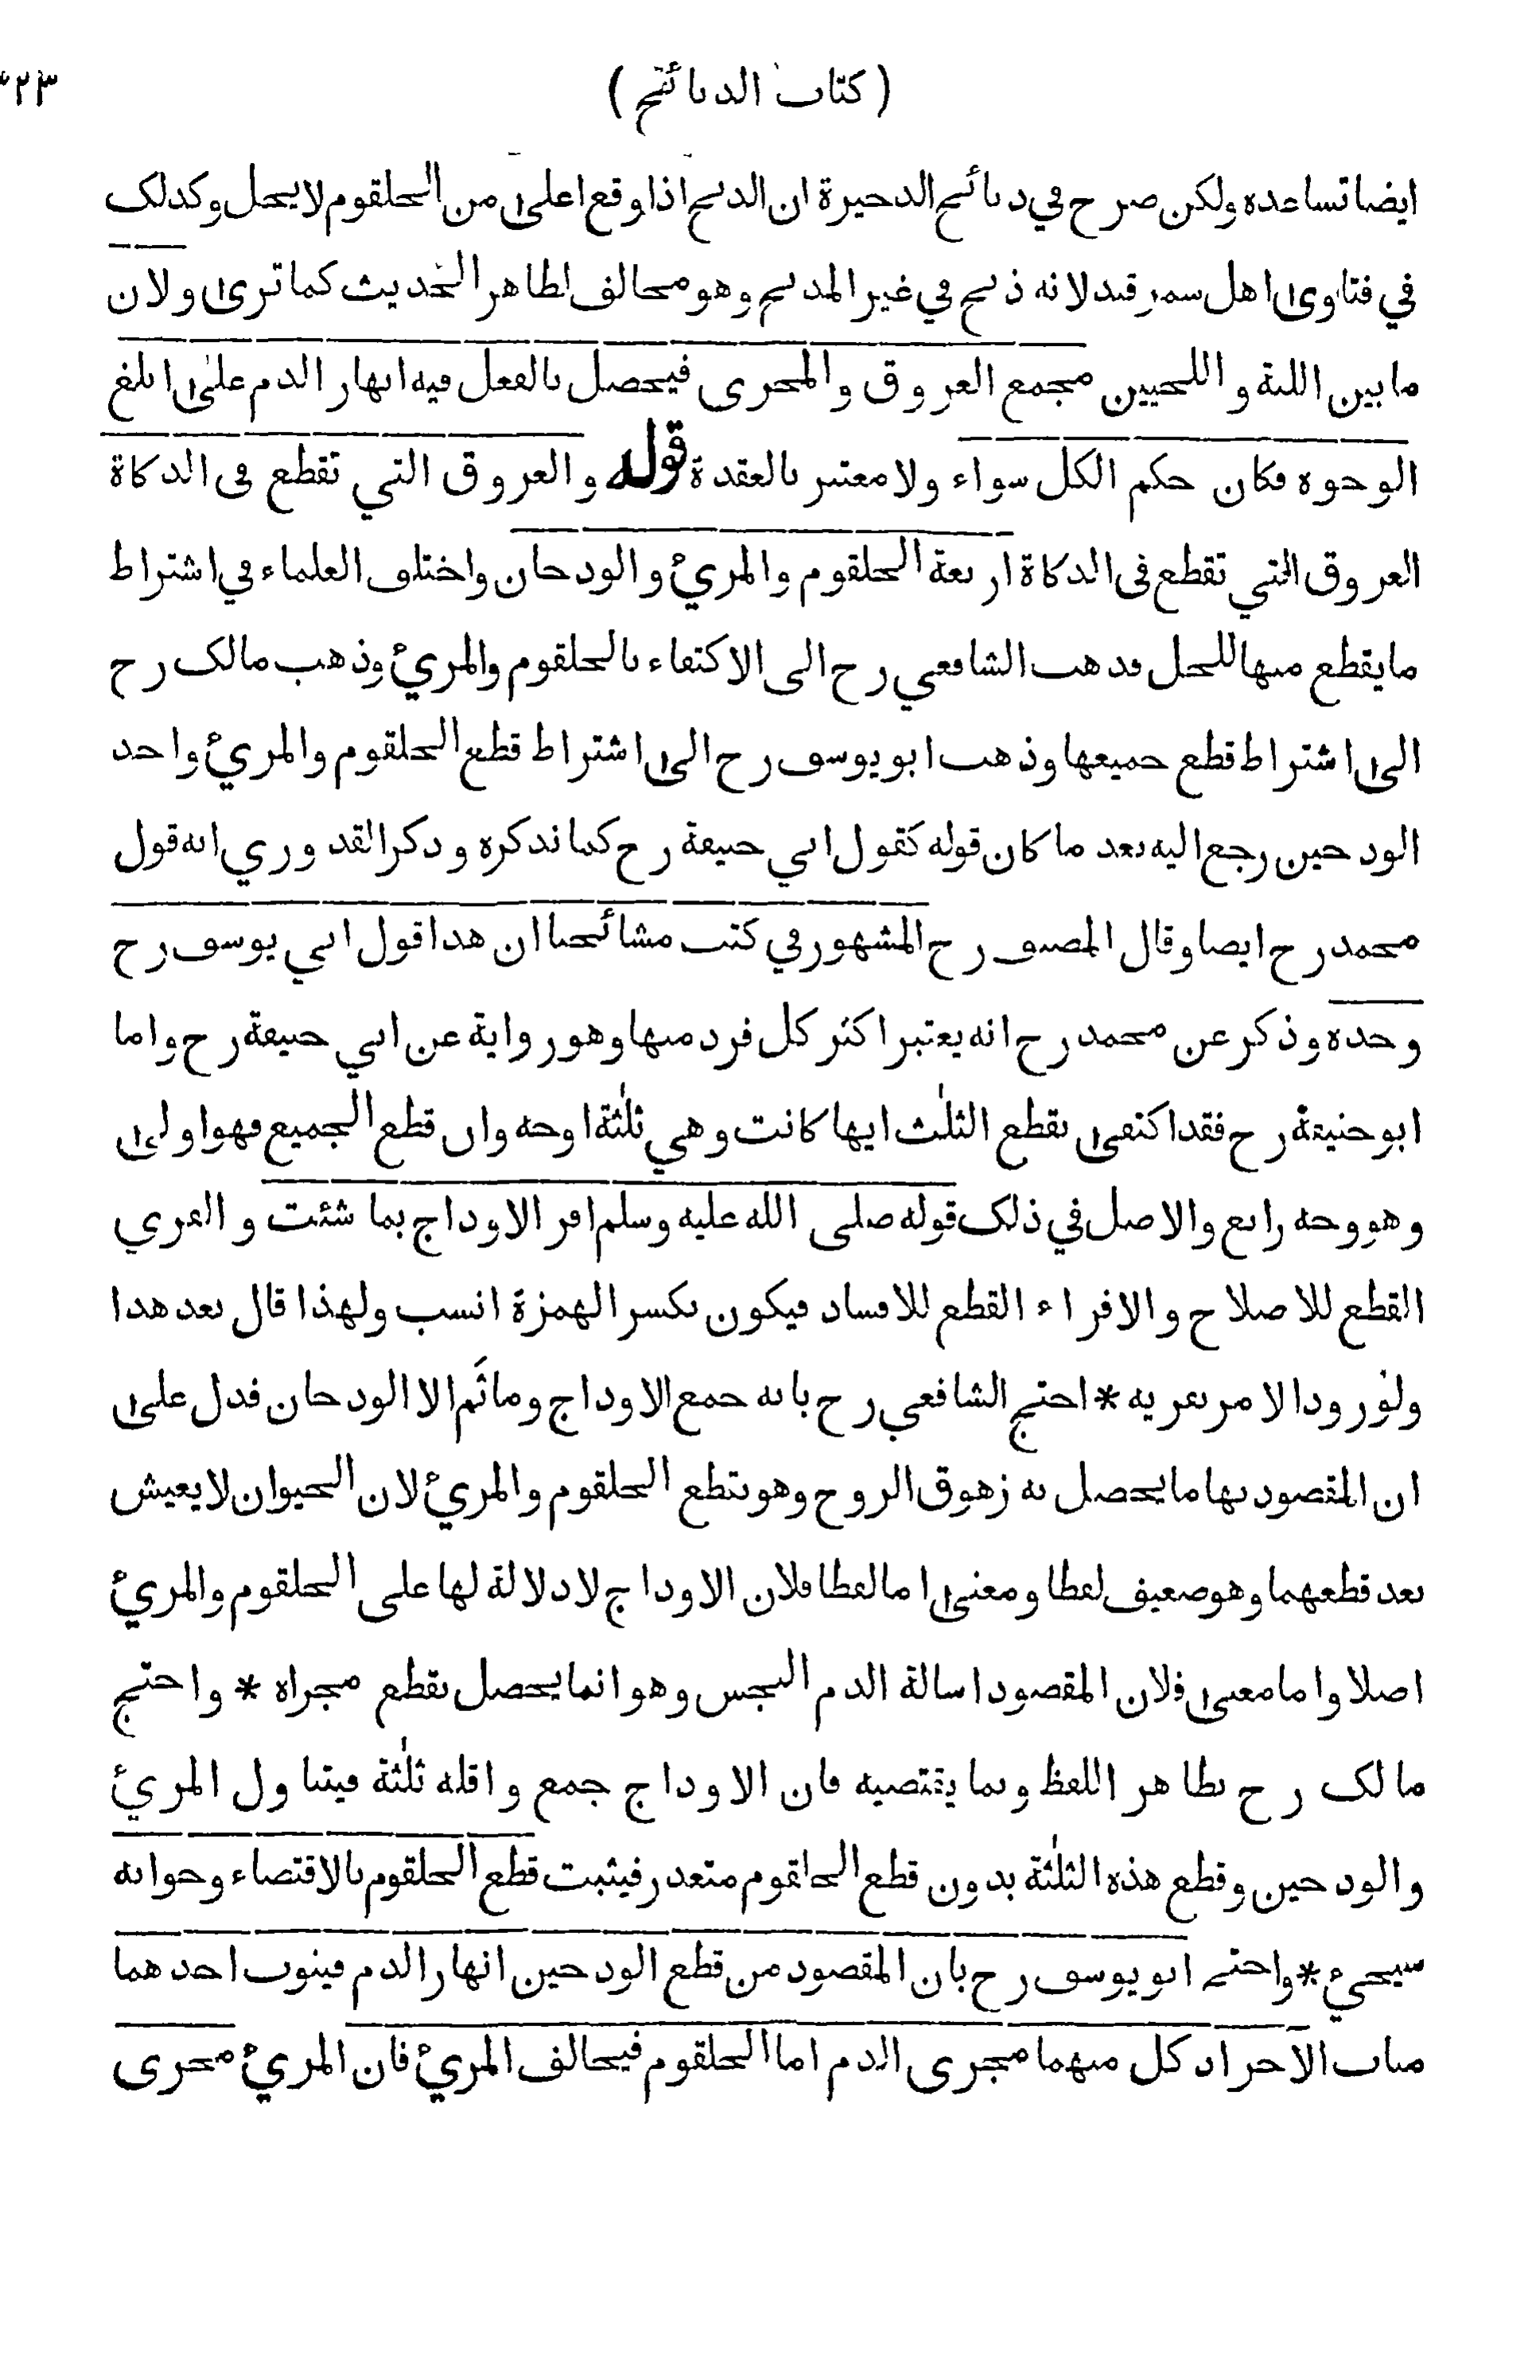 ( كتاب الذبائح )
ايضا تساعده ولكن صرح في ذبائح الذخيرة ان الذبح اذا وقع اعلى من الحلقوم لا يحل وكذلك
في فتاوى اهل سمرقند لانه ذبح في غير المذبح وهو مخالف لظاهر الحديث كما ترى ولان
ما بين اللبة و اللحيين مجمع العروق والمجرى فيحصل بالفعل فيه انهار الدم على ابلغ
الوجوه فكان حكم الكل سواء ولا معتبر بالعقدة قوله والعروق التي تقطع في الذكاة
العروق التي تقطع في الذكاة اربعة الحلقوم والمريء والودجان واختلف العلماء في اشتراط
ما يقطع منها للحل فذهب الشافعي رح الى الاكتفاء بالحلقوم والمريء وذهب مالك رح
الى اشتراط قطع جميعها وذهب ابو يوسف رح الى اشتراط قطع الحلقوم والمريء واحد
الودجين رجع اليه بعد ما كان قوله كقول ابي حنيفة رح كما نذكره وذكر القدوري انه قول
محمد رح ايضا وقال المصنف رح المشهور في كتب مشائخنا ان هذا قول ابي يوسف رح
وحده وذكر عن محمد رح انه يعتبر اكثر كل فرد منها وهو رواية عن ابي حنيفة رح واما
ابو حنيفة رح فقد اكتفى بقطع الثلٰث ايها كانت وهي ثلٰثة اوجه وان قطع الجميع فهو اولى
وهو وجه رابع والاصل في ذلك قوله صلى الله عليه وسلم افر الاوداج بما شئت و الفري
القطع للاصلاح والافراء القطع للافساد فيكون بكسر الهمزة انسب ولهذا قال بعد هذا
ولورود الامر بفريه * احتج الشافعي رح بانه جمع الاوداج وما ثَم الا الودجان فدل على
ان المقصود بها ما يحصل به زهوق الروح وهو بقطع الحلقوم والمريء لان الحيوان لا يعيش
بعد قطعهما وهو ضعيف لفظا ومعنى اما لفظا فلان الاوداج لا دلالة لها على الحلقوم والمريء
اصلا واما معنى فلان المقصود اسالة الدم النجس وهو انما يحصل بقطع مجراه * واحتج
مالك رح بظاهر اللفظ وبما يقتضيه فان الاوداج جمع واقله ثلٰثة فيتناول المريء
والودجين وقطع هذه الثلٰثة بدون قطع الحلقوم متعذر فيثبت قطع الحلقوم بالاقتضاء وجوابه
سيجيء * واحتج ابو يوسف رح بان المقصود من قطع الودجين انهار الدم فينوب احدهما
مناب الآخر اذ كل منهما مجرى الدم اما الحلقوم فيخالف المريء فان المريء مجرى